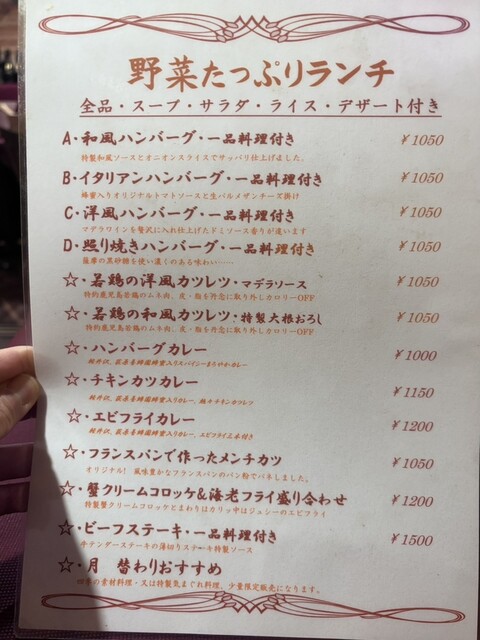 野菜たっぷりランチ
全品・スープ・サラダ・ライス・デザート付き
A・和風ハンバーグ・一品料理付き ¥1050
特製和風ソースとオニオンスライスでサッパリ仕上げました。
B・イタリアンハンバーグ・一品料理付き ¥1050
蜂蜜入りオリジナルトマトソースと生パルメザンチーズ掛け
C・洋風ハンバーグ・一品料理付き ¥1050
マデラワインを贅沢に入れ仕上げたドミソース香りが違います
D・照り焼きハンバーグ・一品料理付き ¥1050
薩摩の黒砂糖を使い濃くのある味わい……
☆・若鶏の洋風カツレツ・マデラソース ¥1050
特約鹿児島若鶏のムネ肉、皮・脂を丹念に取り外しカロリーOFF
☆・若鶏の和風カツレツ・特製大根おろし ¥1050
特約鹿児島若鶏のムネ肉、皮・脂を丹念に取り外しカロリーOFF
☆・ハンバーグカレー ¥1000
軽井沢、荻原養蜂園蜂蜜入りスパイシーまろやかカレー
☆・チキンカツカレー ¥1150
軽井沢、荻原養蜂園蜂蜜入りカレー、チキンカツレツ
☆・エビフライカレー ¥1200
軽井沢、荻原養蜂園蜂蜜入りカレー、エビフライ三本付き
☆・フランスパンで作ったメンチカツ ¥1050
オリジナル! 風味豊かなフランスパンのパン粉でパネしました。
☆・蟹クリームコロッケ&海老フライ盛り合わせ ¥1200
特製蟹クリームコロッケとまわりはカリッ中はジューシーのエビフライ
☆・ビーフステーキ・一品料理付き ¥1500
牛テンダーステーキの薄切りステーキ特製ソース
☆・月 替わりおすすめ
四季の素材料理・又は特製気まぐれ料理、少量限定販売になります。